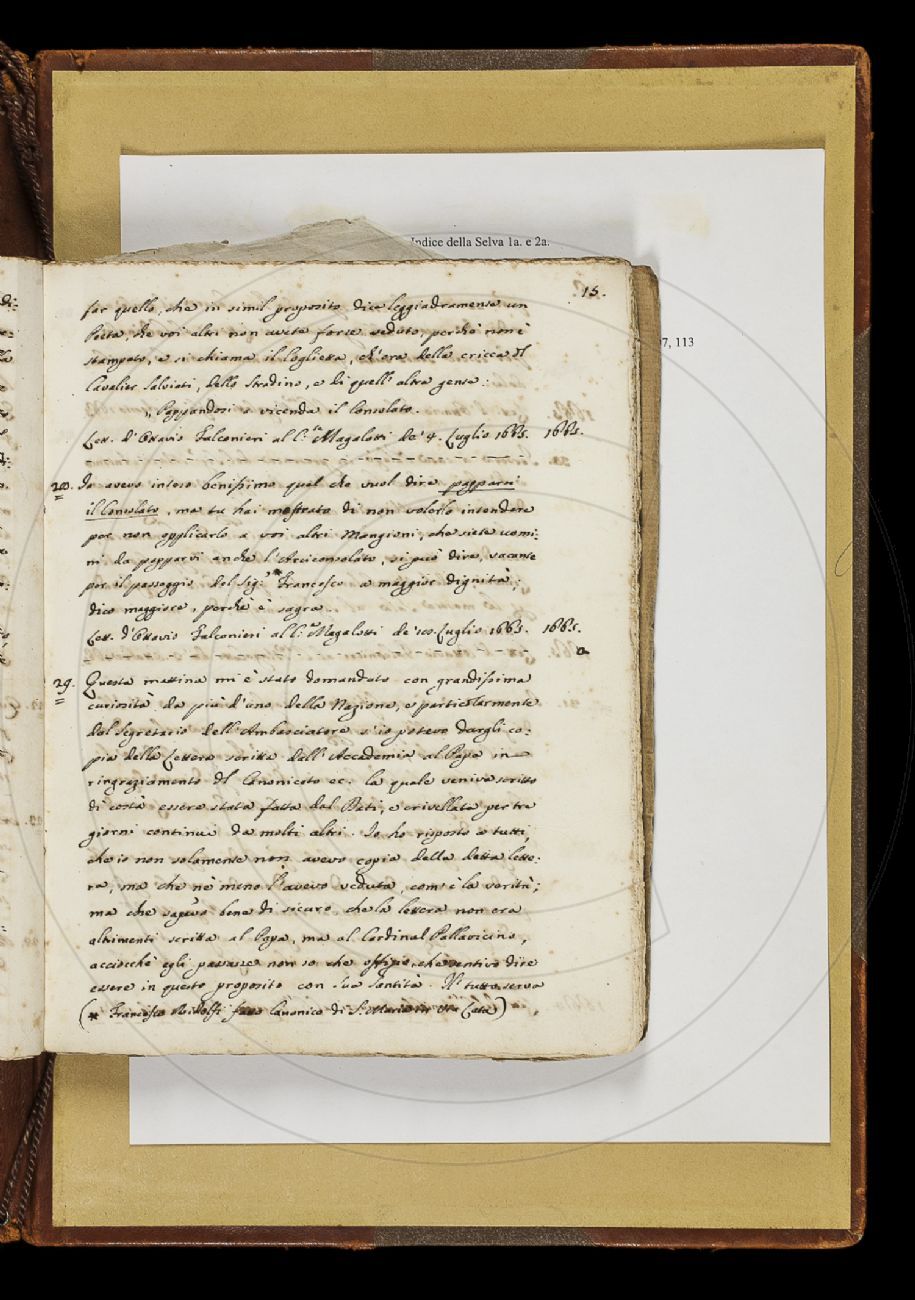 Indice della Selva 1a. e 2a.
7, 113
15.
far quello, che in simil proposito dice leggiadramente un
Poeta, che voi altri non avete forse veduto, perchè non è
stampato, e si chiama il Coglietta, ch'era della cricca dl
Cavalier Salviati, dello Stradino, e di quell' altra gente:
„ Pappandosi a vicenda il Consolato.
Lett. d'Ottavio Falconieri al C.te Magalotti de' 4. Luglio 1665. 1665.
20. Io avevo inteso benissimo quel che vuol dire papparsi
il Consolato, ma tu hai mostrato di non volerlo intendere
per non applicarlo a voi altri Mangioni, che siete uomi:
ni da papparvi anche l'Arciconsolato, si può dire, vacante
per il passaggio del Sig.r * Francesco a maggior dignità;
dico maggiore, perchè è sagra.
Lett. d'Ottavio Falconieri al C.te Magalotti de' 10. Luglio 1665. 1665.
29. Questa mattina mi è stato domandato con grandissima
curiosità da più d'uno della Nazione, e particolarmente
dal Segretario dell'Ambasciatore s'io potevo dargli co:
pia della Lettera scritta dall'Accademia al Papa in
ringraziamento dl Canonicato ec. la quale veniva scritto
di costà essere stata fatta dal Dati, e crivellata per tre
giorni continui da molti altri. Io ho risposto a tutti
che io non solamente non avevo copia della detta lette:
ra, ma che nè meno l'avevo veduta, com'è la verità;
ma che sapevo bene di sicuro, che la lettera non era
altrimenti scritta al Papa, ma al Cardinal Pallavicino,
acciocchè egli passasse non so che offizio, che sentivo dire
essere in questo proposito con Sua Santità. Il tutto serva
(* Francesco Ridolfi fatto Canonico di S. Maria in Via Lata)